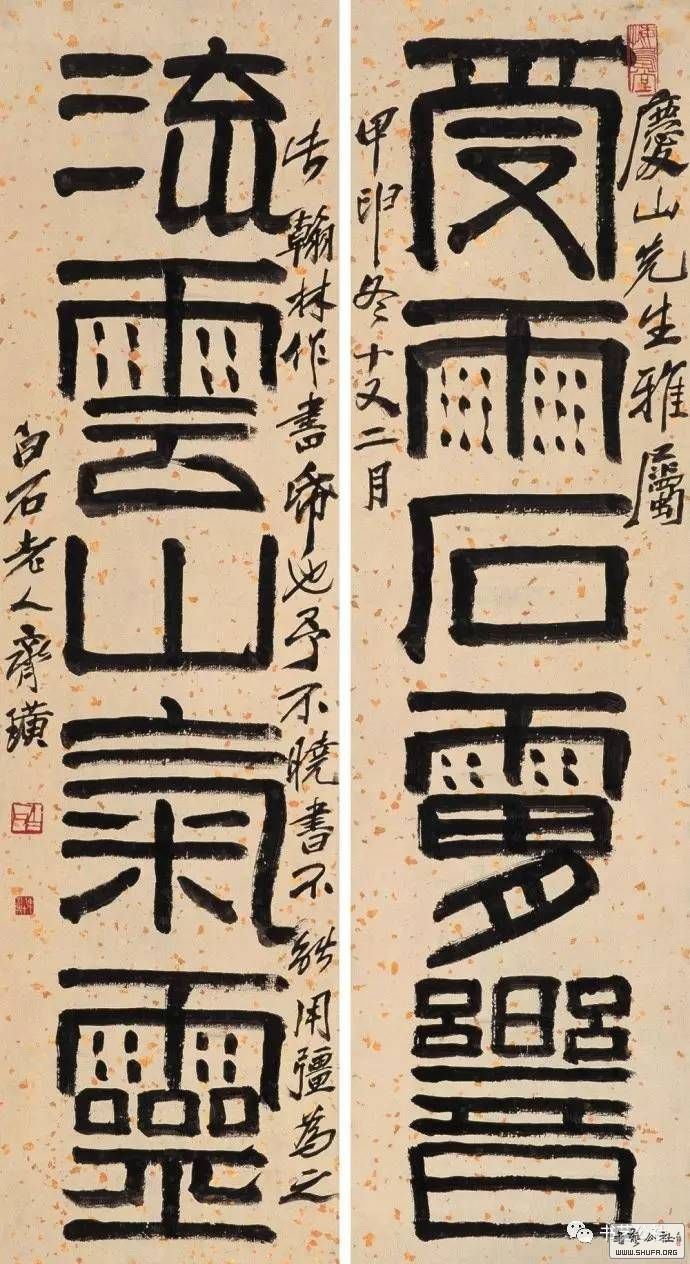 慶山先生雅屬
受雨石
甲申冬十又二月
翰林作書 也予不曉書不能用彊為之
流雲山氣靈
白石老人齊璜
书艺公社
WWW.SHUFA.ORG